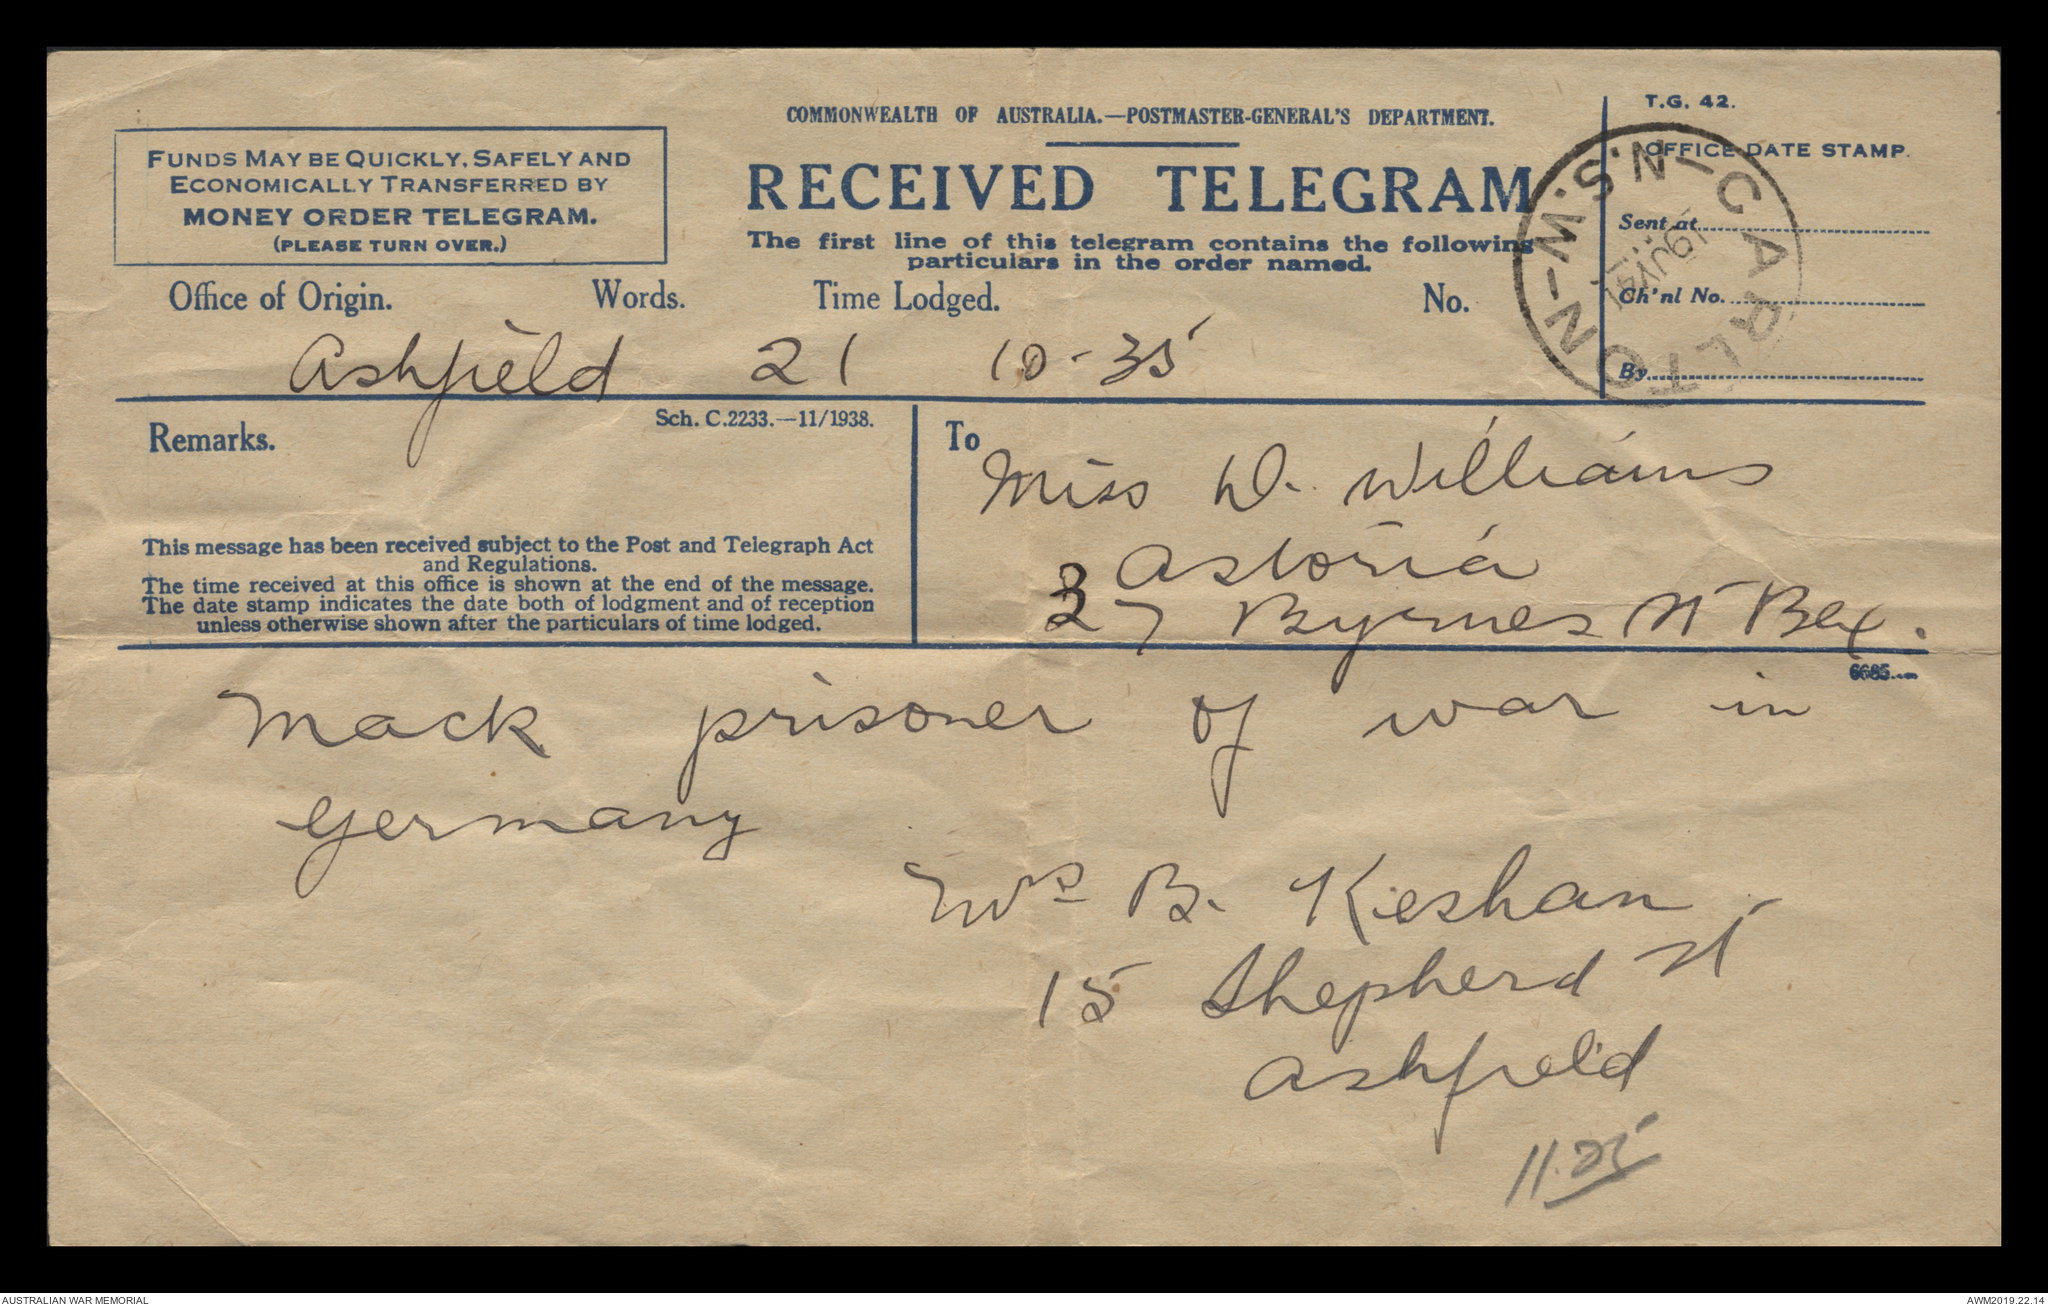 COMMONWEALTH OF AUSTRALIA.—POSTMASTER-GENERAL'S DEPARTMENT.
T.G. 42.
FUNDS MAY BE QUICKLY, SAFELY AND
ECONOMICALLY TRANSFERRED BY
MONEY ORDER TELEGRAM.
(PLEASE TURN OVER.)
RECEIVED TELEGRAM
The first line of this telegram contains the following
particulars in the order named.
OFFICE DATE STAMP.
Sent at
Ch'nl No.
By
CARLTON-N.S.W-
Office of Origin. Words. Time Lodged. No.
Ashfield 21 10-35
Sch. C.2233.—11/1938.
Remarks.
This message has been received subject to the Post and Telegraph Act
and Regulations.
The time received at this office is shown at the end of the message.
The date stamp indicates the date both of lodgment and of reception
unless otherwise shown after the particulars of time lodged.
To
Miss D. Williams
Astoria
27 Byrnes St Bex.
6685
Mack prisoner of war in
Germany
Mrs B. Kieshan
15 Shepherd St
Ashfield
11.25
AUSTRALIAN WAR MEMORIAL
AWM2019.22.14